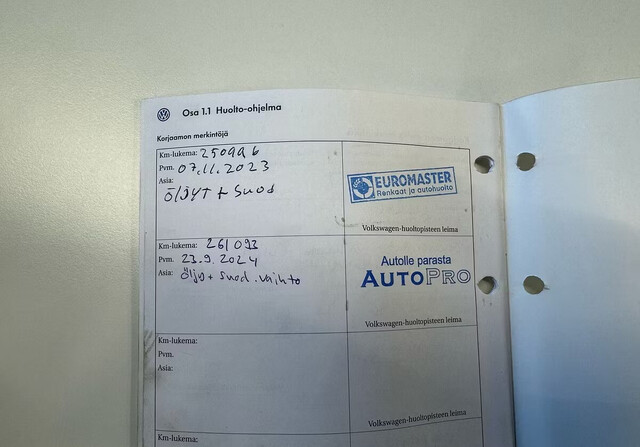 Osa 1.1 Huolto-ohjelma
Korjaamon merkintöjä
Km-lukema: 250996
Pvm. 07.11.2023
Asia:
ÖLJYT + Suod
EUROMASTER
Renkaat ja autohuolto
Volkswagen-huoltopisteen leima
Km-lukema: 261093
Pvm. 23.9.2024
Asia: Öljy + suod.vaihto
Autolle parasta
AUTOPRO
Volkswagen-huoltopisteen leima
Km-lukema:
Pvm.
Asia:
Volkswagen-huoltopisteen leima
Km-lukema: